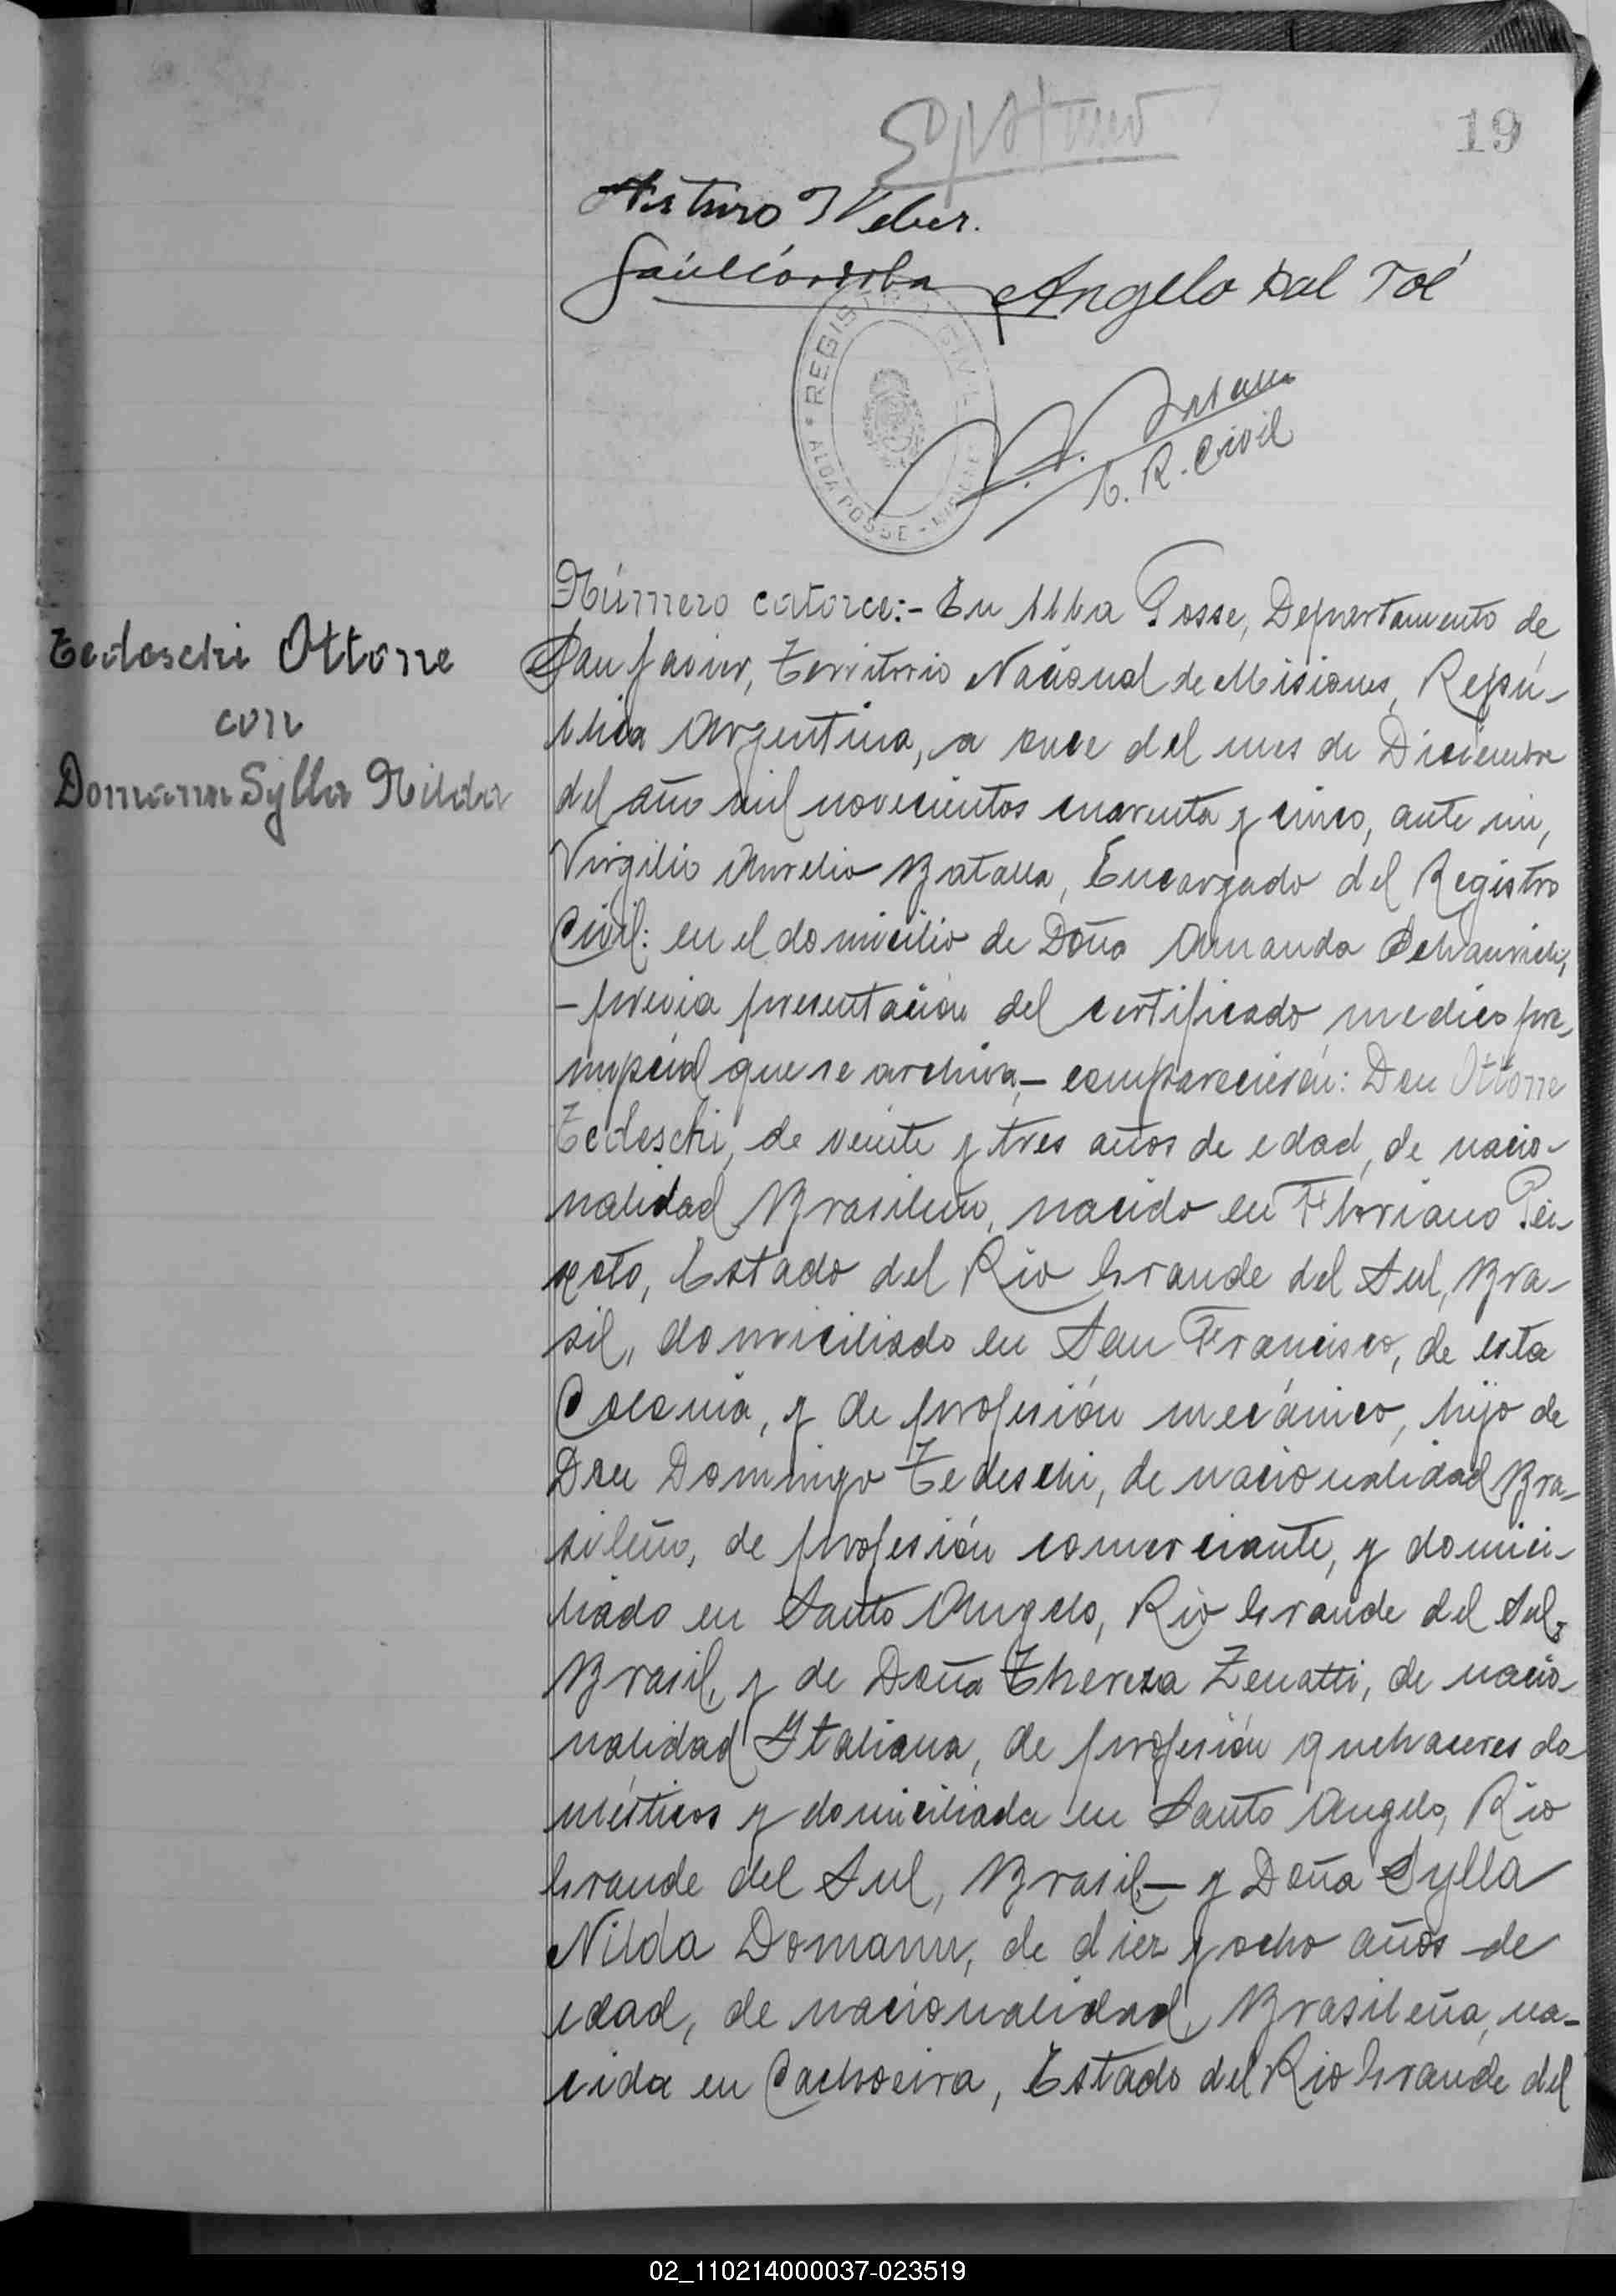 19
Arturo Weber.
Saúl Córdoba Angelo Dal Toé
REGISTRO CIVIL
ALBA POSSE - MISIONES
E. R. Civil
Número catorce:- En Alba Posse, Departamento de
San Javier, Territorio Nacional de Misiones, Repú-
blica Argentina, a once del mes de Diciembre
del año mil novecientos cuarenta y cinco, ante mi,
Virgilio Aurelio Batalla, Encargado del Registro
Civil: en el domicilio de Doña Amanda
- previa presentación del certificado medico pre-
nupcial que se archiva,- comparecieron: Don Ottone
Tedeschi, de veinte y tres años de edad, de nacio-
nalidad Brasileño, nacido en Floriano Pei-
xoto, Estado del Rio Grande del Sul, Bra-
sil, domiciliado en San Francisco, de esta
Colonia, y de profesión mecánico, hijo de
Don Domingo Tedeschi, de nacionalidad Bra-
sileño, de profesión comerciante, y domici-
liado en Santo Angelo, Rio Grande del Sul,
Brasil, y de Doña Thereza Zenatti, de nacio-
nalidad Italiana, de profesión quehaceres do-
mésticos y domiciliada en Santo Angelo, Rio
Grande del Sul, Brasil,- y Doña Sylla
Nilda Domann, de diez y ocho años de
edad, de nacionalidad Brasileña, na-
cida en Cachoeira, Estado del Rio Grande del
Tedeschi Ottone
con
Domann Sylla Nilda
02_110214000037-023519